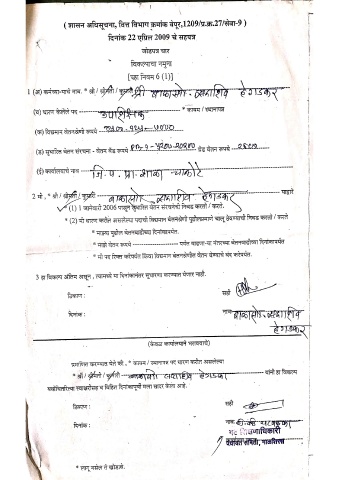 ( शासन अधिसूचना, वित्त विभाग क्रमांक वेपूर,1209/प्र.क्र.27/सेवा-9 )
दिनांक 22 एप्रिल 2009 चे सहपत्र
जोडपत्र चार
विकल्पाचा नमुना
[पहा नियम 6 (1)]
1 (अ) कर्मचा-याचे नाव. * श्री / श्रीमती / कुमारी श्री बाळासो सदाशिव हेगडकर
(ब) धारण केलेले पद उपशिक्षक * कायम / स्थानापन्न
(क) विद्यमान वेतनश्रेणी रूपये
(ड) सुधारित वेतन संरचना - वेतन बँड रूपये ग्रेड वेतन रूपये
(ई) कार्यालयाचे नाव जि. प. प्रा. शाळा
2 मी , * श्री / श्रीमती / कुमारी बाळासो सदाशिव हेगडकर याद्वारे
(1) 1 जानेवारी 2006 पासून सुधारित वेतन संरचनेची निवड करतो / करते
(2) मी धारण करीत असलेल्या पदाची विद्यमान वेतनश्रेणी पुढीलप्रमाणे चालू ठेवण्याची निवड करतो / करते
* माझ्या पुढील वेतनवाढीच्या दिनांकापर्यंत.
* माझे वेतन रूपये पर्यंत वाढवणा-या नंतरच्या वेतनवाढीच्या दिनांकापर्यंत
* मी पद रिक्त करेपर्यंत किंवा विद्यमान वेतनश्रेणीत वेतन घेण्याचे बंद करेपर्यंत.
3 हा विकल्प अंतिम असून , त्यामध्ये मी दिनांकानंतर सुधारणा करण्यात येणार नाही.
ठिकाण : सही
दिनांक : नाव बाळासो सदाशिव
हेगडकर
(केवळ कार्यालयाने भरावयाचे)
प्रमाणित करण्यात येते की , * कायम / स्थानापन्न पद धारण करीत असलेल्या
* श्री / श्रीमती / कुमारी बाळासो सदाशिव हेगडकर यांनी हा विकल्प
यथोचितरित्या स्वाक्षरीसह व विहित दिनांकापूर्वी मला सादर केला आहे.
ठिकाण : सही
दिनांक : नाव
गट शिक्षणाधिकारी
पंचायत समिती, माळशिरस
* लागू नसेल ते खोडावे.